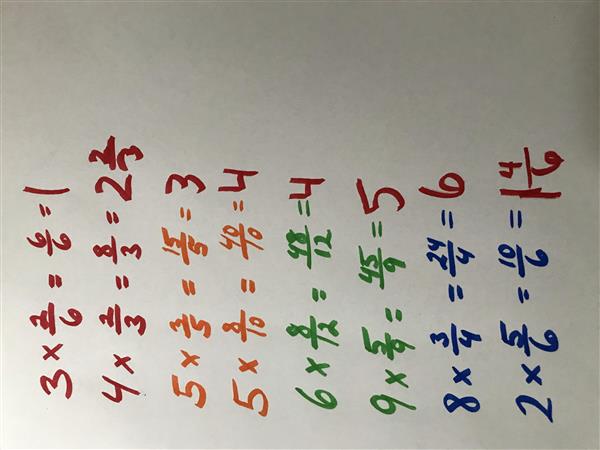 3 × 2/6 = 6/6 = 1
4 × 2/3 = 8/3 = 2 2/3
5 × 3/5 = 15/5 = 3
5 × 8/10 = 40/10 = 4
6 × 8/12 = 48/12 = 4
9 × 5/9 = 45/9 = 5
8 × 3/4 = 24/4 = 6
2 × 5/6 = 10/6 = 1 4/6